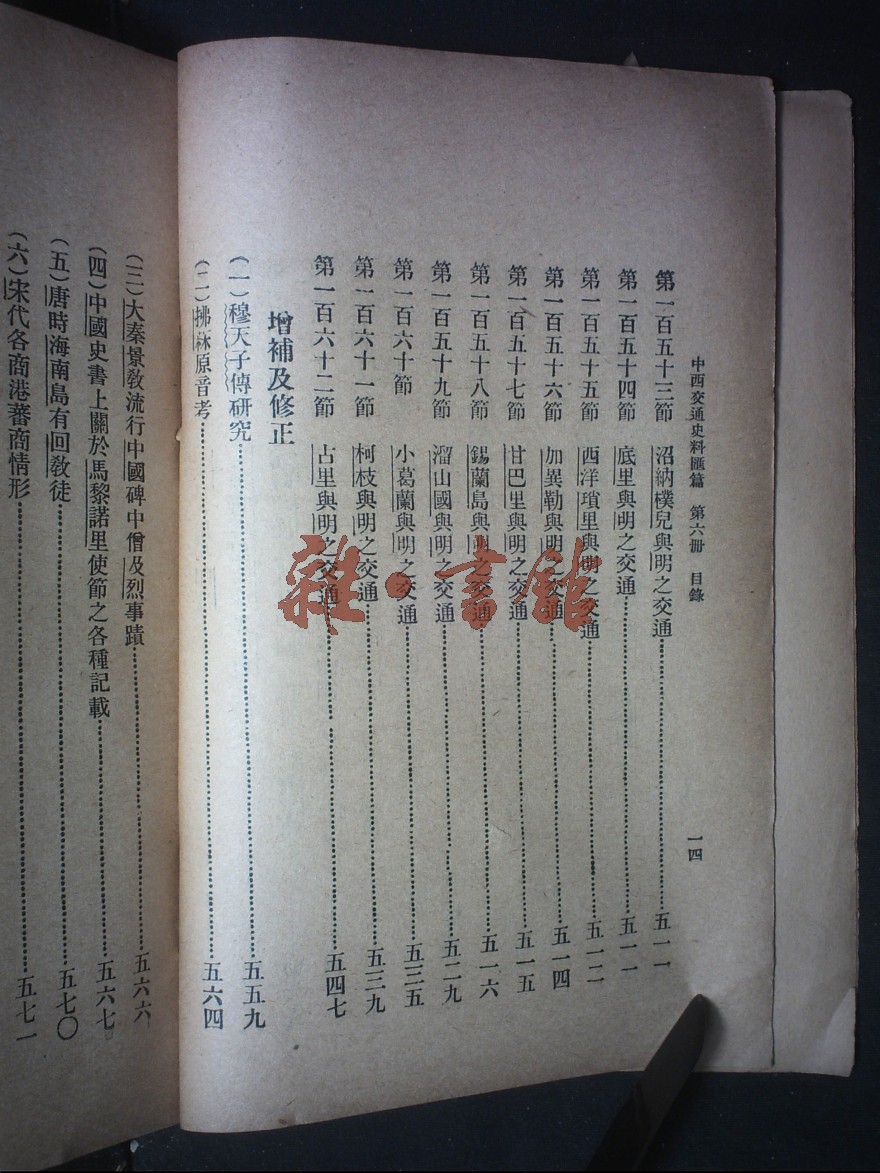 中西交通史料匯篇 第六冊 目錄 一四
第一百五十三節 沼納樸兒與明之交通 五一一
第一百五十四節 底里與明之交通 五一一
第一百五十五節 西洋瑣里與明之交通 五一二
第一百五十六節 加異勒與明之交通 五一四
第一百五十七節 甘巴里與明之交通 五一五
第一百五十八節 錫蘭島與明之交通 五一六
第一百五十九節 溜山國與明之交通 五二九
第一百六十節 小葛蘭與明之交通 五三五
第一百六十一節 柯枝與明之交通 五三九
第一百六十二節 占里與明之交通 五四七
增補及修正
(一)穆天子傳研究 五五九
(二)拂菻原音考 五六四
(三)大秦景敎流行中國碑中僧及烈事蹟 五六六
(四)中國史書上關於馬黎諾里使節之各種記載 五六七
(五)唐時海南島有回敎徒 五七〇
(六)宋代各商港蕃商情形 五七一
雜·書館